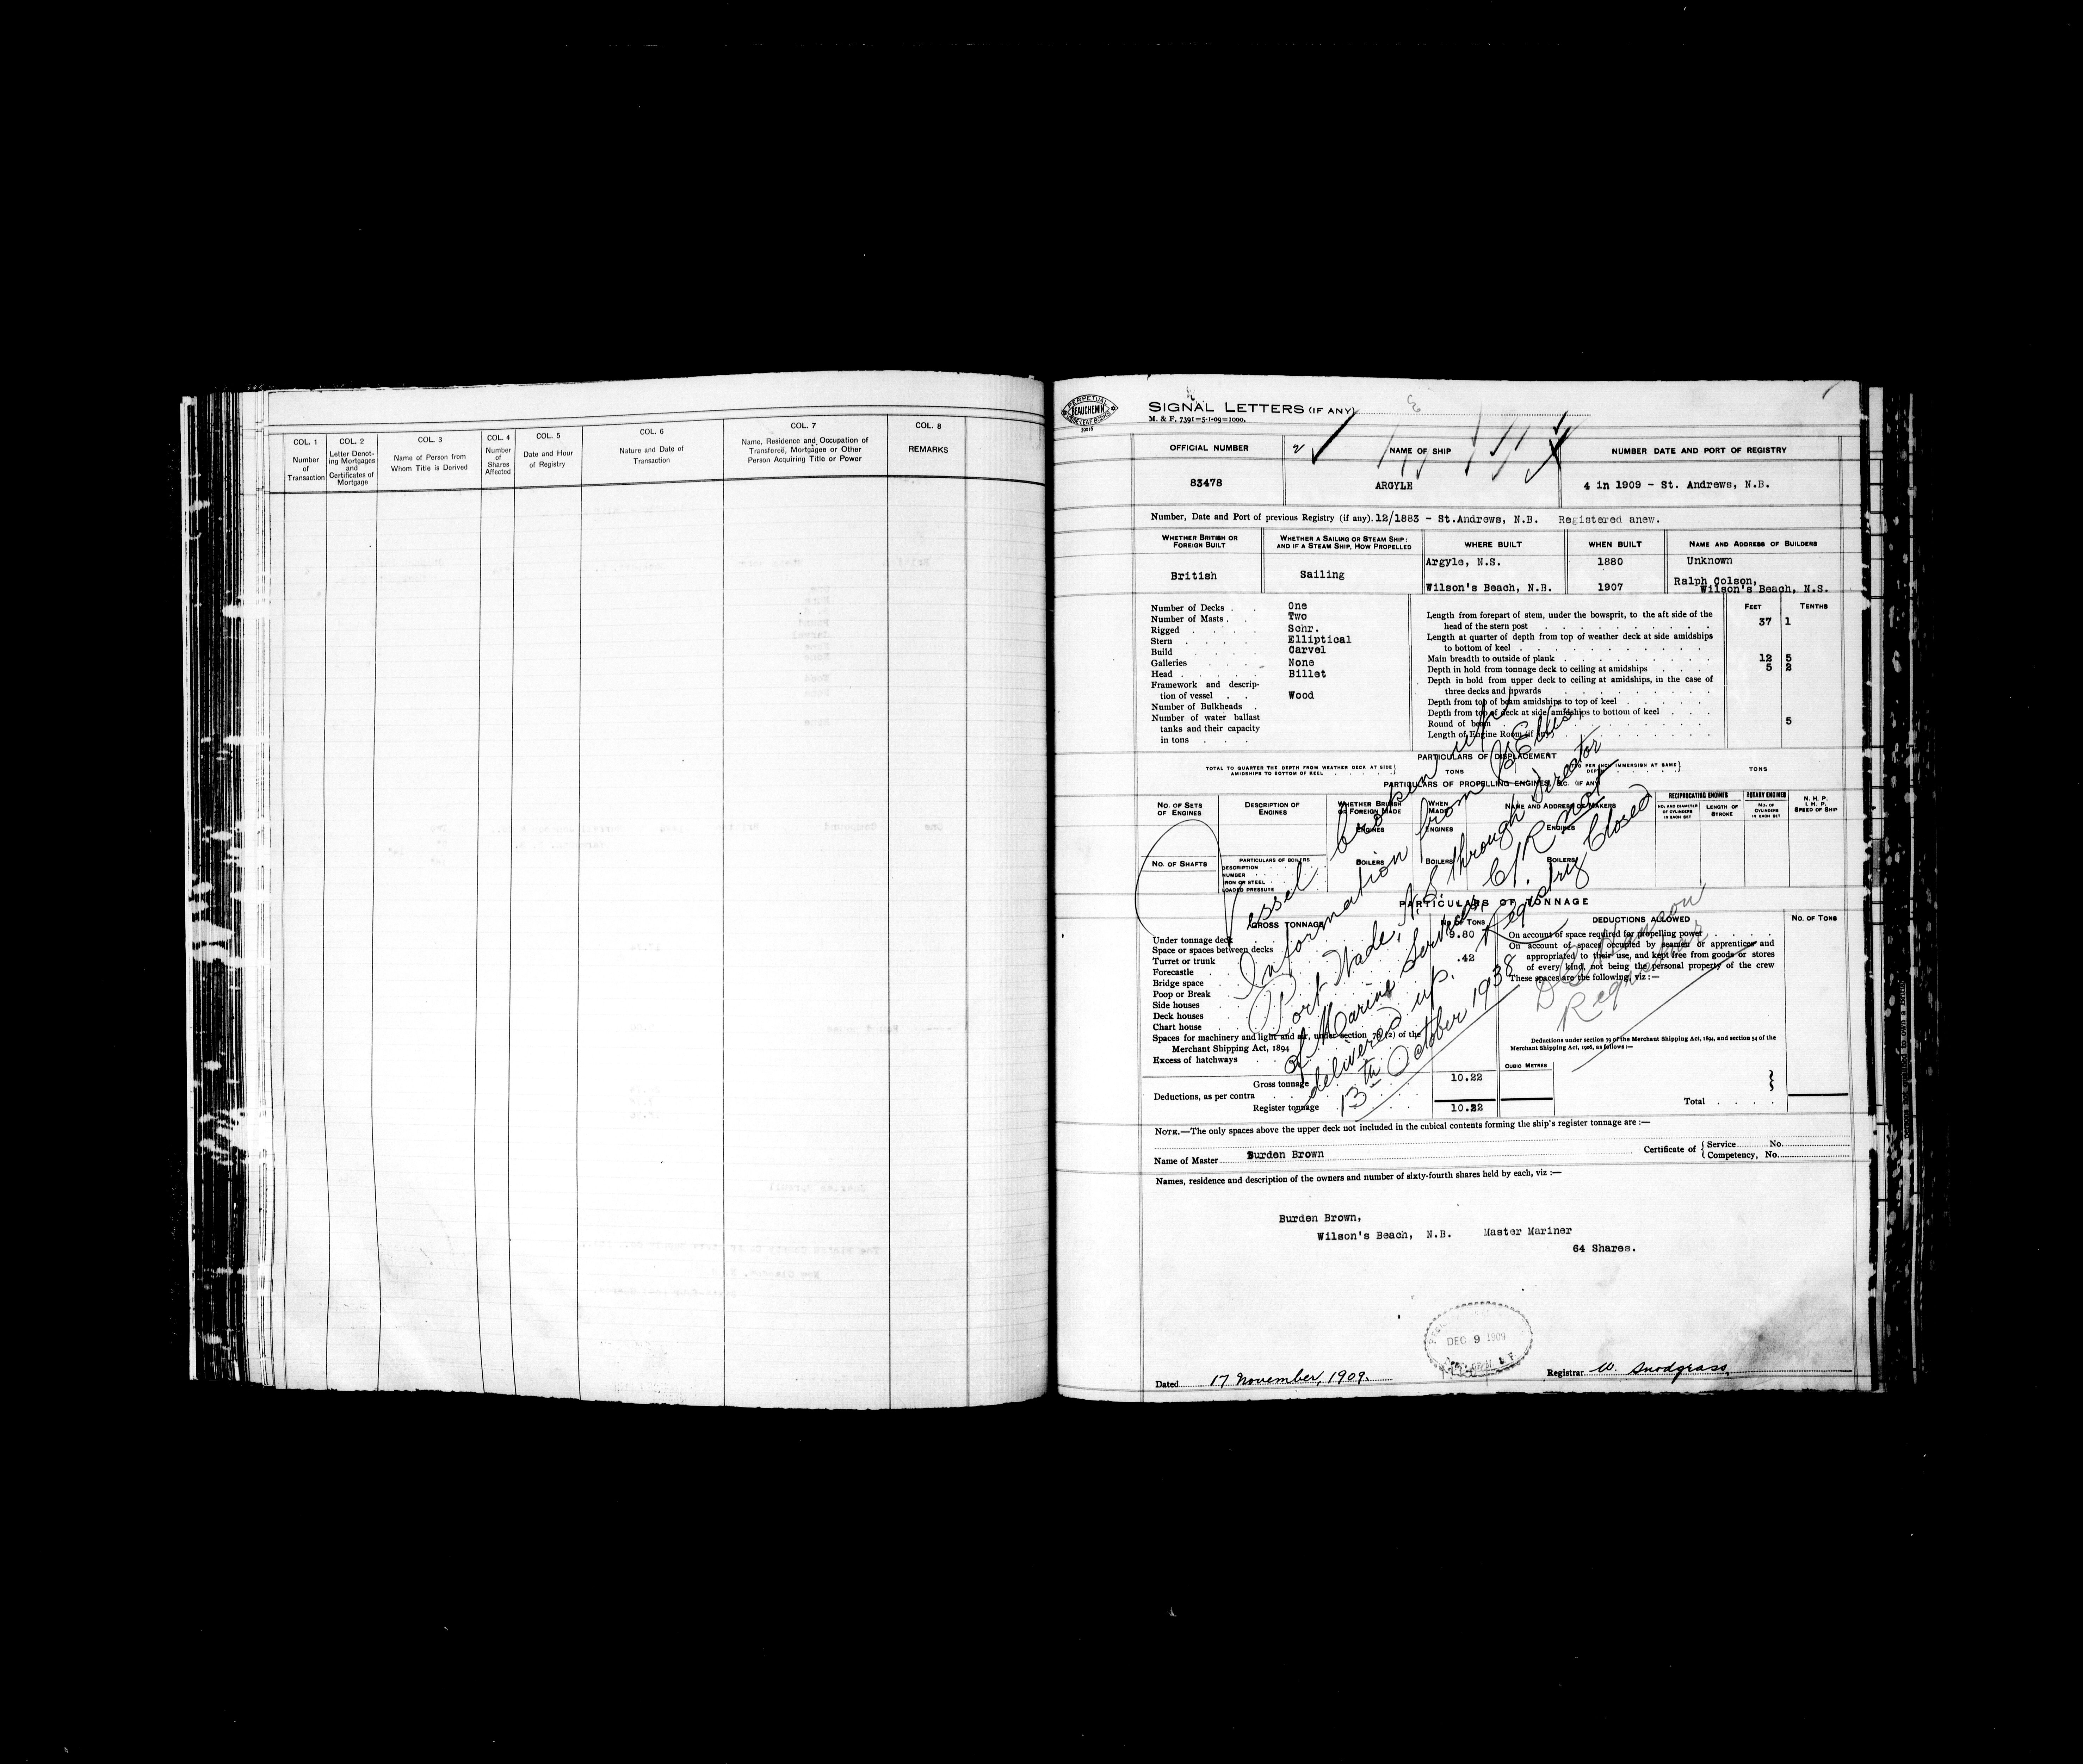 COL. 1
Number
of
Transaction
COL. 2
Letter Denot-
ing Mortgages
and
Certificates of
Mortgage
COL. 3
Name of Person from
Whom Title is Derived
COL. 4
Number
of
Shares
Affected
COL. 5
Date and Hour
of Registry
COL. 6
Nature and Date of
Transaction
COL. 7
Name, Residence and Occupation of
Transferee, Mortgagee or Other
Person Acquiring Title or Power
COL. 8
REMARKS
PERPETUAL
BEAUCHEMIN
SIGNAL LETTERS (IF ANY)
M. & F. 7391=5-1-09=1000.
OFFICIAL NUMBER
NAME OF SHIP
NUMBER DATE AND PORT OF REGISTRY
83478
ARGYLE
4 in 1909 - St. Andrews, N.B.
Number, Date and Port of previous Registry (if any). 12/1883 - St.Andrews, N.B. Registered anew.
WHETHER BRITISH OR
FOREIGN BUILT
WHETHER A SAILING OR STEAM SHIP:
AND IF A STEAM SHIP, HOW PROPELLED
WHERE BUILT
WHEN BUILT
NAME AND ADDRESS OF BUILDERS
British
Sailing
Argyle, N.S.
1880
Unknown
Wilson's Beach, N.B.
1907
Ralph Colson,
Wilson's Beach, N.S.
FEET
TENTHS
Number of Decks . . One
Number of Masts . . Two
Rigged . . . . . Schr.
Stern . . . . Elliptical
Build . . . . . Carvel
Galleries . . . . None
Head . . . . . . Billet
Framework and descrip-
tion of vessel . . Wood
Number of Bulkheads .
Number of water ballast
tanks and their capacity
in tons . . .
Length from forepart of stem, under the bowsprit, to the aft side of the
head of the stern post 37 1
Length at quarter of depth from top of weather deck at side amidships
to bottom of keel
Main breadth to outside of plank 12 5
Depth in hold from tonnage deck to ceiling at amidships 5 2
Depth in hold from upper deck to ceiling at amidships, in the case of
three decks and upwards
Depth from top of beam amidships to top of keel
Depth from top of deck at side amidships to bottom of keel
Round of beam 5
Length of Engine Room (if any)
PARTICULARS OF DISPLACEMENT
TOTAL TO QUARTER THE DEPTH FROM WEATHER DECK AT SIDE
AMIDSHIPS TO BOTTOM OF KEEL
TONS
PER INCH IMMERSION AT SAME
DEPTH
TONS
PARTICULARS OF PROPELLING ENGINES, &C. (IF ANY)
NO. OF SETS
OF ENGINES
DESCRIPTION OF
ENGINES
WHETHER BRITISH
OR FOREIGN MADE
WHEN
MADE
NAME AND ADDRESS OF MAKERS
RECIPROCATING ENGINES
ROTARY ENGINES
NO. AND DIAMETER
OF CYLINDERS
IN EACH SET
LENGTH OF
STROKE
NO. OF
CYLINDERS
IN EACH SET
N. H. P.
I. H. P.
SPEED OF SHIP
ENGINES
ENGINES
ENGINES
NO. OF SHAFTS
PARTICULARS OF BOILERS
DESCRIPTION
NUMBER
IRON OR STEEL
LOADED PRESSURE
BOILERS
BOILERS
BOILERS
PARTICULARS OF TONNAGE
GROSS TONNAGE
NO. OF TONS
DEDUCTIONS ALLOWED
NO. OF TONS
Under tonnage deck 9.80
Space or spaces between decks
Turret or trunk .42
Forecastle
Bridge space
Poop or Break
Side houses
Deck houses
Chart house
Spaces for machinery and light and air, under section 78 (2) of the
Merchant Shipping Act, 1894
Excess of hatchways
Gross tonnage 10.22
Deductions, as per contra
Register tonnage 10.22
On account of space required for propelling power
On account of spaces occupied by seamen or apprentices and
appropriated to their use, and kept free from goods or stores
of every kind, not being the personal property of the crew
These spaces are the following, viz :—
Deductions under section 79 of the Merchant Shipping Act, 1894, and section 54 of the
Merchant Shipping Act, 1906, as follows :—
CUBIC METRES
Total
Vessel broken up
Information from
Ellis,
Port Wade, N.S. through Director
of Marine Services, C/R not
delivered up. Registry Closed
13th October 1938
Registrar
NOTE.—The only spaces above the upper deck not included in the cubical contents forming the ship's register tonnage are :—
Name of Master Burden Brown
Certificate of { Service No.
Competency, No.
Names, residence and description of the owners and number of sixty-fourth shares held by each, viz :—
Burden Brown,
Wilson's Beach, N.B. Master Mariner
64 Shares.
DEC 9 1909
Dated 17 November, 1909.
Registrar W. Snodgrass,